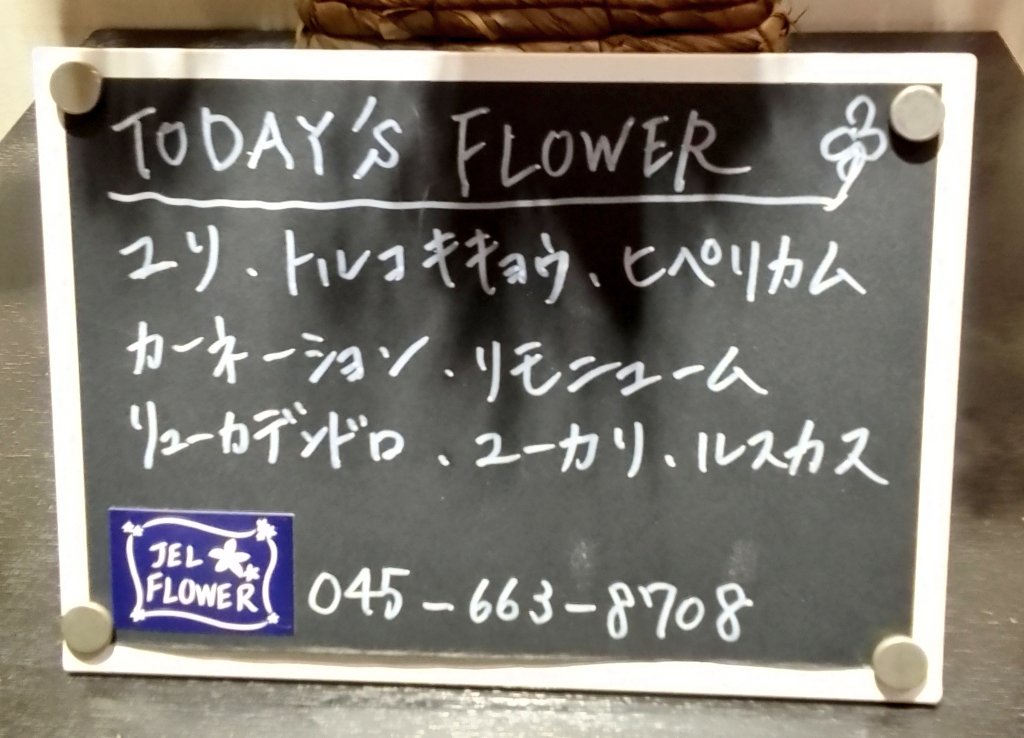 TODAY'S FLOWER
ユリ、トルコキキョウ、ヒペリカム
カーネーション、リモニューム
リューカデンドロ、ユーカリ、ルスカス
JEL
FLOWER
045-663-8708